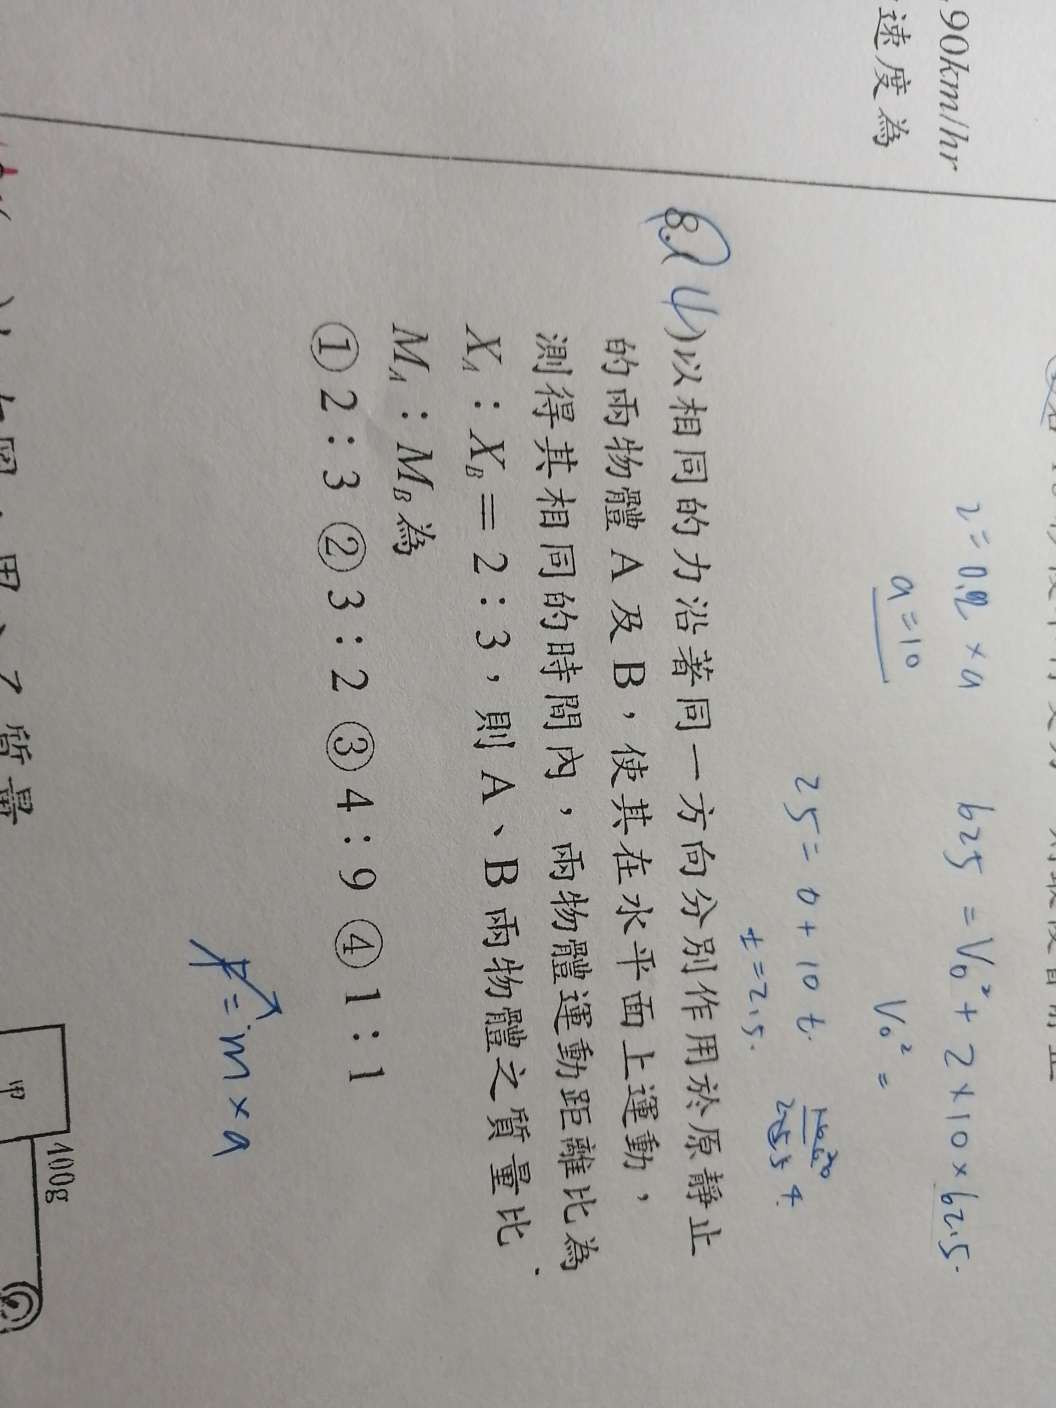 90km/hr
速度為
2=0.2×a
625=V₀²+2×10×62.5.
a=10
V₀²=
25=0+10t.
t=2.5.
8.(4)以相同的力沿著同一方向分別作用於原靜止
的兩物體A及B，使其在水平面上運動，
測得其相同的時間內，兩物體運動距離比為
X_A：X_B＝2：3，則A、B兩物體之質量比
M_A：M_B為
①2：3 ②3：2 ③4：9 ④1：1
F=m×a
質量
甲
400g